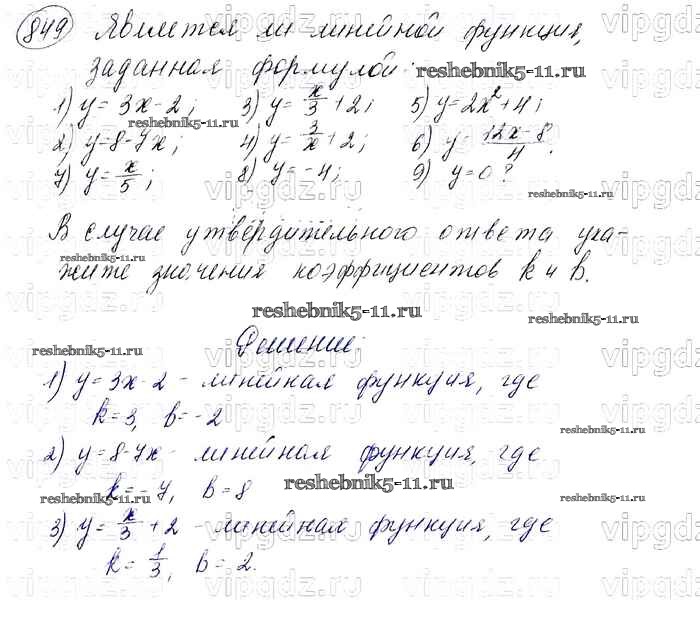 849 Является ли линейной функция,
заданная формулой:
reshebnik5-11.ru
1) y = 3x - 2; 3) y = x/3 + 2; 5) y = 2x² + 4;
reshebnik5-11.ru
2) y = 8 - 7x; 4) y = 3/x + 2; 6) y = (12x - 8)/4.
7) y = x/5; 8) y = -4; 9) y = 0?
reshebnik5-11.ru
В случае утвердительного ответа ука-
жите значения коэффициентов k и b.
reshebnik5-11.ru
reshebnik5-11.ru
reshebnik5-11.ru
Решение:
reshebnik5-11.ru
1) y = 3x - 2 - линейная функция, где
k = 3, b = -2
reshebnik5-11.ru
2) y = 8 - 7x - линейная функция, где
k = -7, b = 8
reshebnik5-11.ru
reshebnik5-11.ru
reshebnik5-11.ru
3) y = x/3 + 2 - линейная функция, где
k = 1/3, b = 2.
vipgdz.ru